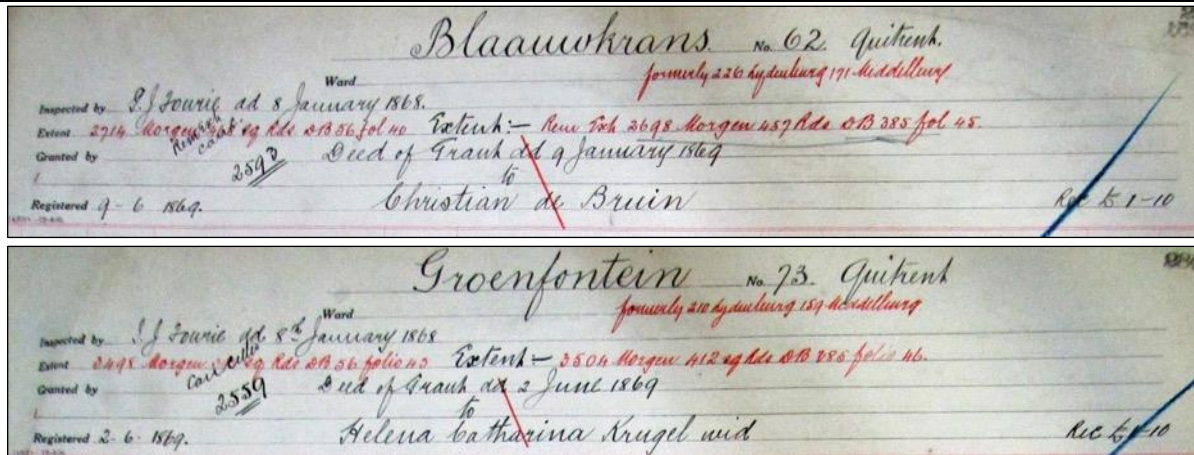 Blaauwkrans. No. 62. Quitrent.
formerly 226 Lydenburg 171 Middelburg
Ward
Inspected by P. J Fourie dd 8 January 1868.
Extent 2714 Morgen 468 sq Rds DB 56 fol 40 Extent:- Rem Ext 2698 Morgen 457 Rds DB 385 fol 45.
Granted by Deed of Grant dd 9 January 1869
2593
to
Registered 9-6 1869. Christian de Bruin Rec £ 1-10
Groenfontein No. 73. Quitrent
formerly 210 Lydenburg 159 Middelburg
Ward
Inspected by P. J Fourie dd 8th January 1868
Extent 3498 Morgen sq Rds DB 56 folio 43 Extent:- 3504 Morgen 412 sq Rds DB 285 folio 46.
Cancelled
Granted by Deed of Grant dd 2 June 1869
2559
to
Registered 2-6-1869. Helena Catharina Krugel wid Rec £ 1-10